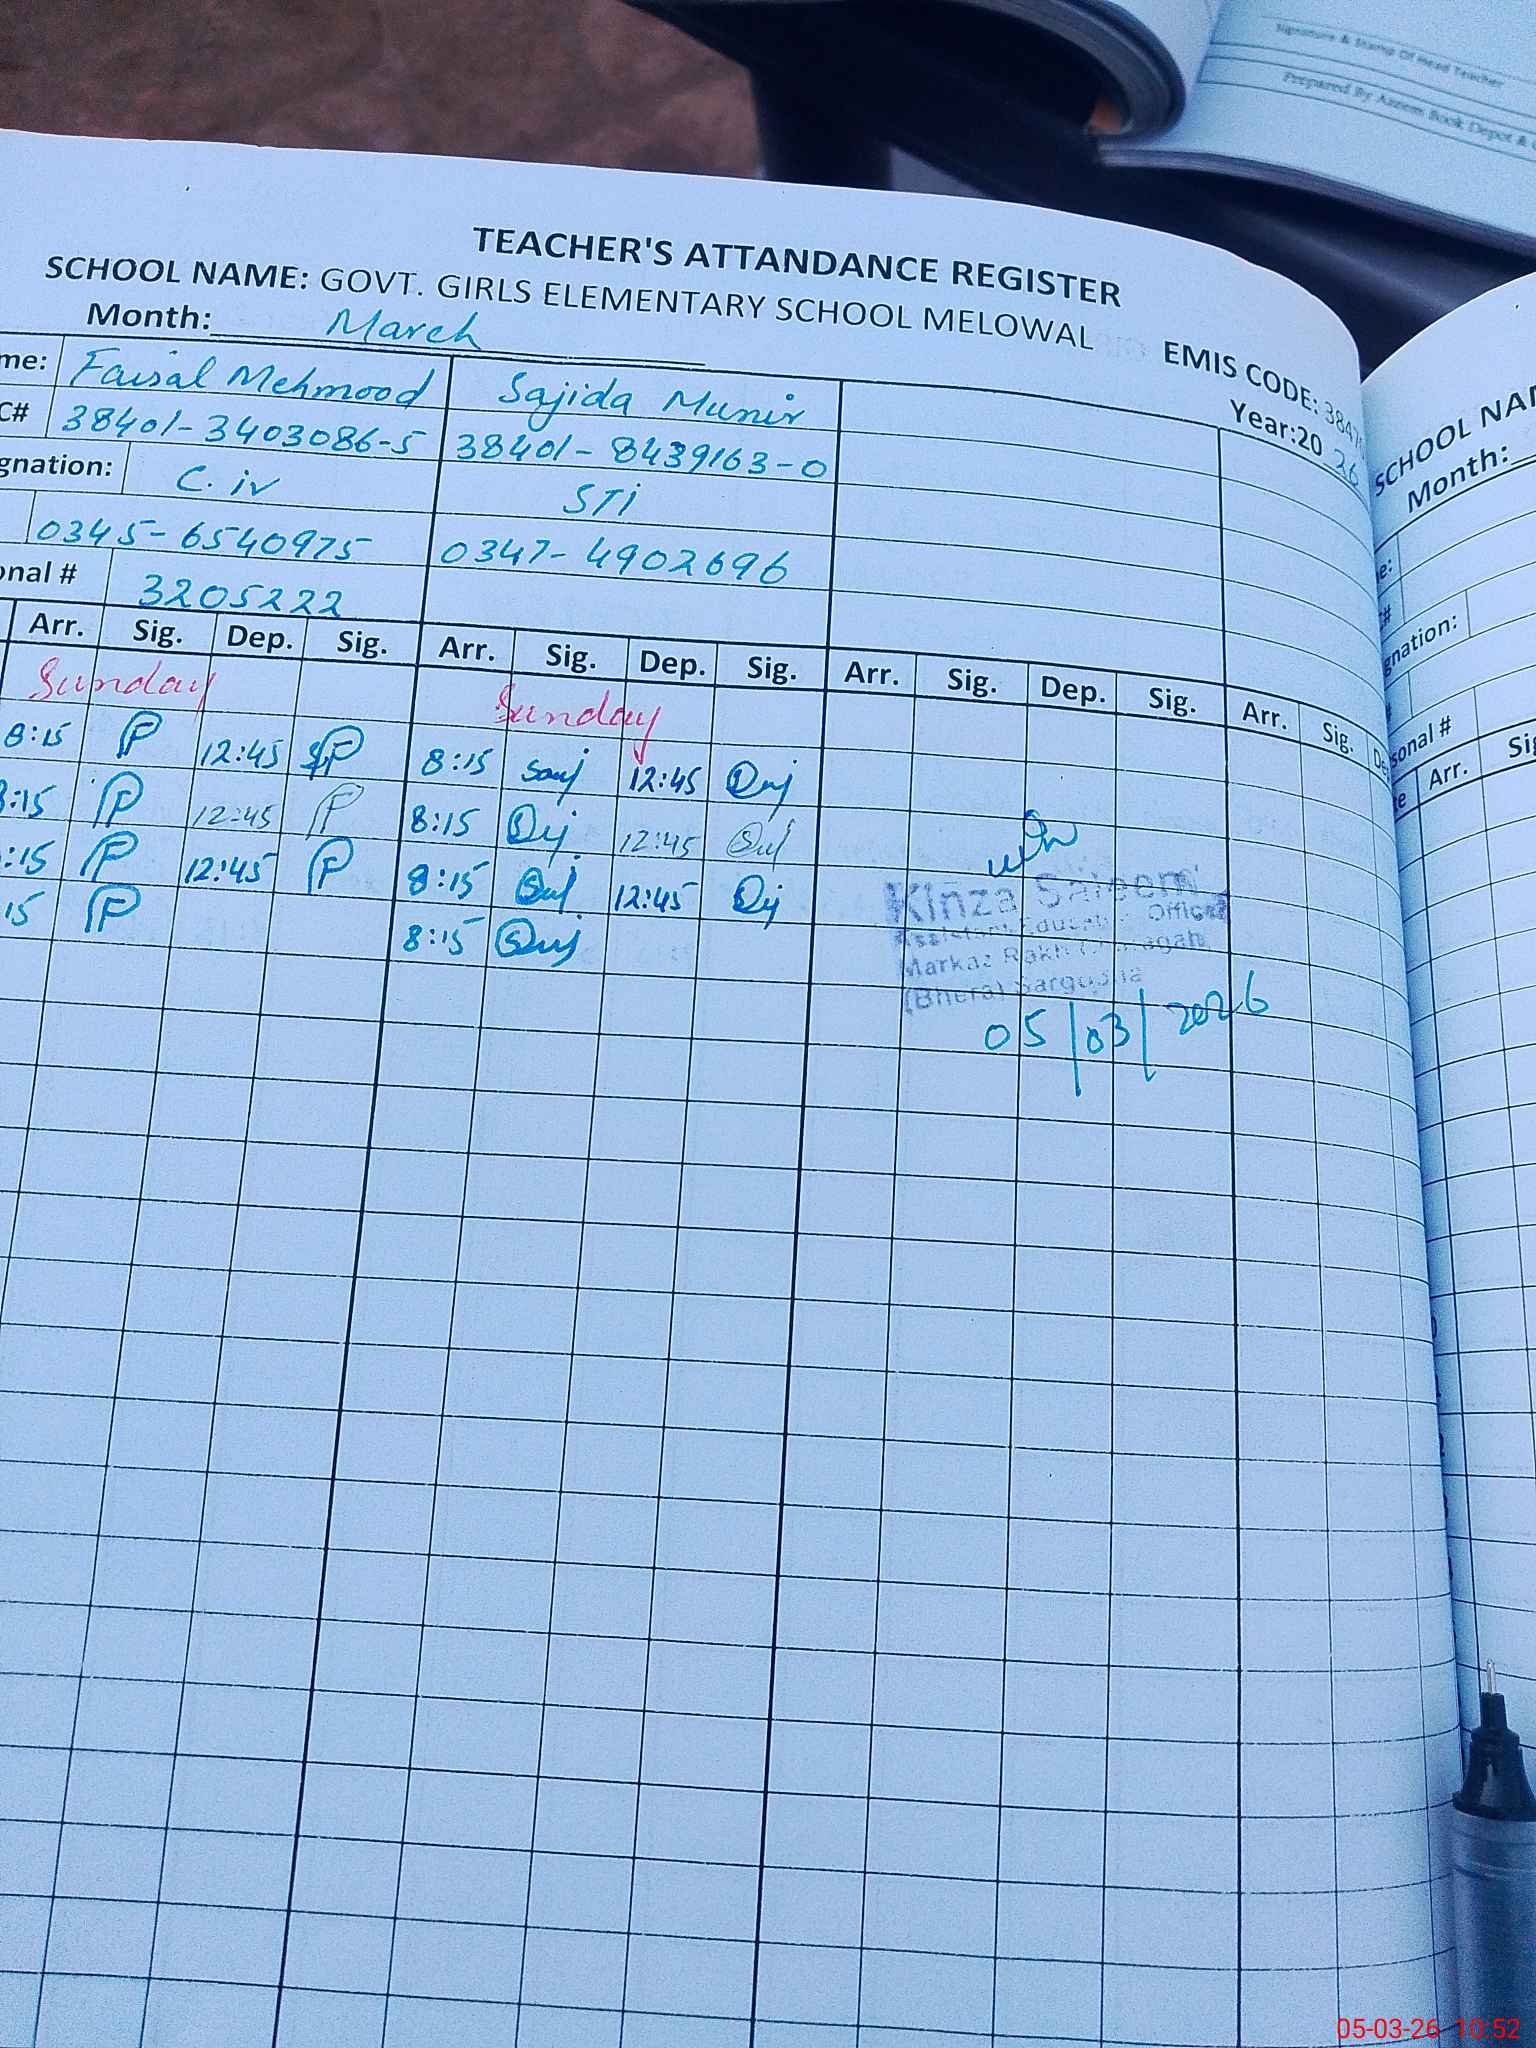 Signature & Stamp Of Head Teacher
Prepared By Azeem Book Depot &
TEACHER'S ATTANDANCE REGISTER
SCHOOL NAME: GOVT. GIRLS ELEMENTARY SCHOOL MELOWAL EMIS CODE: 3847
Month: March Year:20 26
me: Faisal Mehmood Sajida Munir
C# 38401-3403086-5 38401-8439163-0
gnation: C.iv STI
0345-6540975 0347-4902696
onal # 3205222
Arr. Sig. Dep. Sig. Arr. Sig. Dep. Sig. Arr. Sig. Dep. Sig. Arr. Sig. De
Sunday Sunday
8:15 P 12:45 P 8:15 12:45
8:15 P 12:45 P 8:15 12:45
:15 P 12:45 P 8:15 12:45
15 P 8:15
Kinza Saleem
Assistant Education Officer
Markaz Rakh
(Bhera) Sargodha
05/03/2026
SCHOOL NA
Month:
e:
C#
gnation:
#
sonal #
te Arr. Sig
05-03-26 10:52